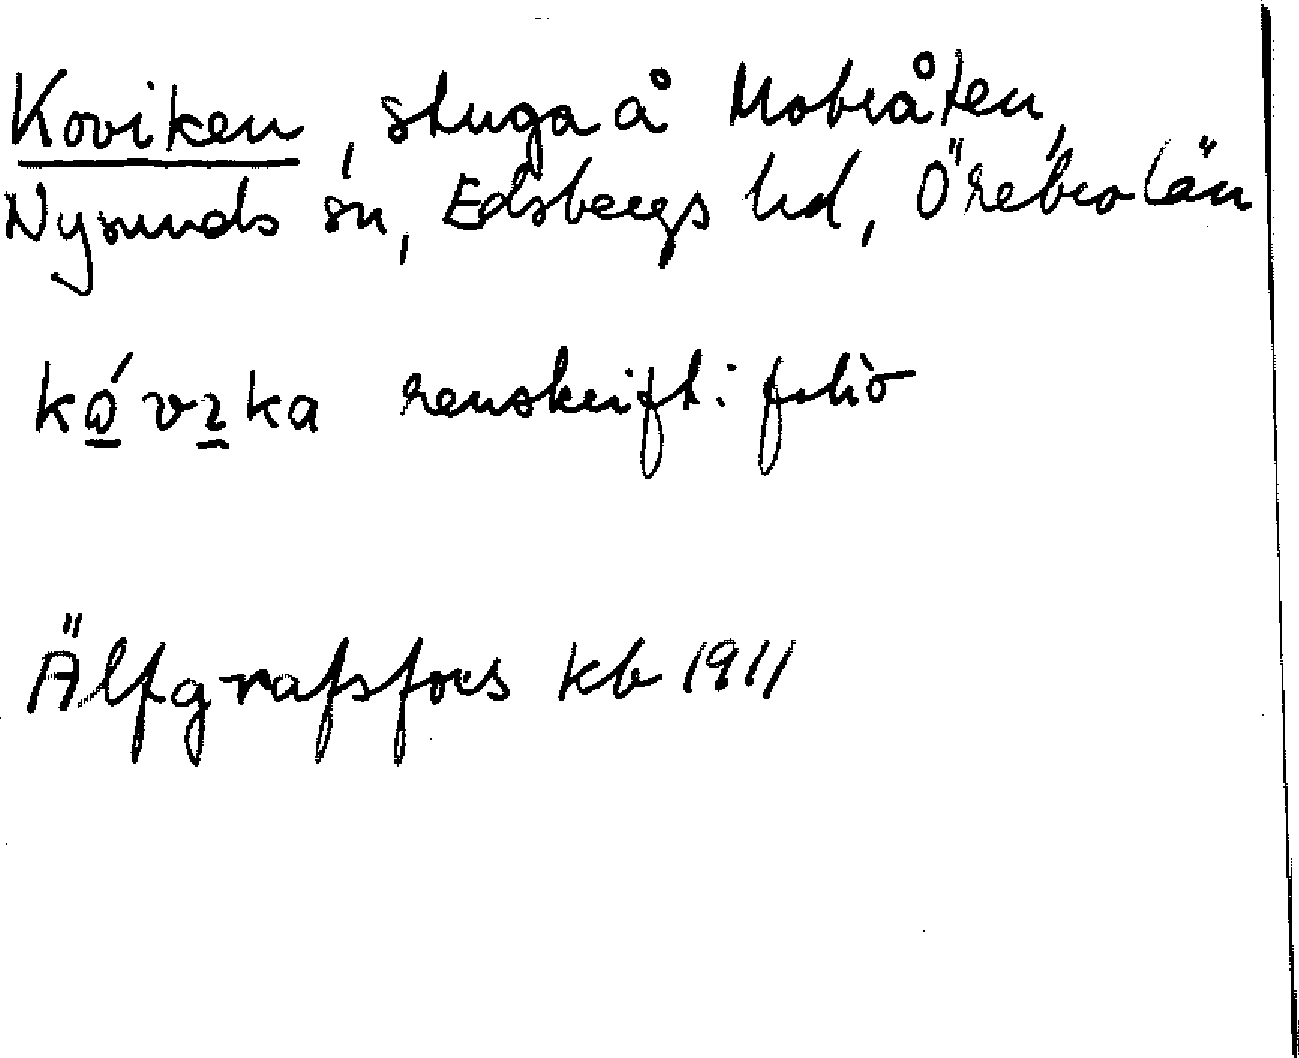 Koviken, stuga å Mobråten,
Nysunds sn, Edsbergs hd, Örebro län
renskrift i folio
Älfgrafsfors kb 1911